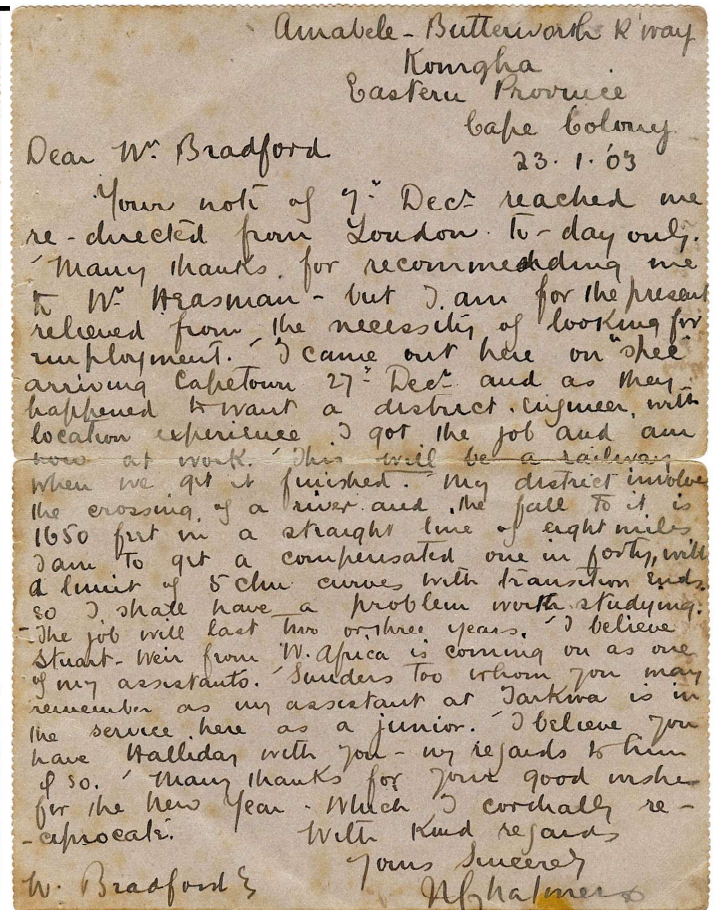 Amabele - Butterworth R'way
Komgha
Eastern Province
Cape Colony
23.1.'03
Dear Mr. Bradford
Your note of 7th Decr. reached me
re-directed from London to-day only.
Many thanks for recommending me
to Mr. Heasman - but I am for the present
relieved from the necessity of looking for
employment. I came out here on "spec"
arriving Capetown 27th Decr. and as they
happened to want a district engineer, with
location experience I got the job and am
now at work. This will be a railway
when we get it finished. My district involves
the crossing of a river and the fall to it is
1650 feet in a straight line of eight miles
I am to get a compensated one in forty, with
a limit of 5 chn curves with transition ends.
so I shall have a problem worth studying.
The job will last two or three years. I believe
Stuart-Weir from W. Africa is coming on as one
of my assistants. Sunders too whom you may
remember as my assistant at Tarkwa is in
the service here as a junior. I believe you
have Halliday with you - my regards to him
if so. Many thanks for your good wishes
for the New Year - which I cordially re-
-ciprocate.
With kind regards
Yours Sincerely
W. Bradford